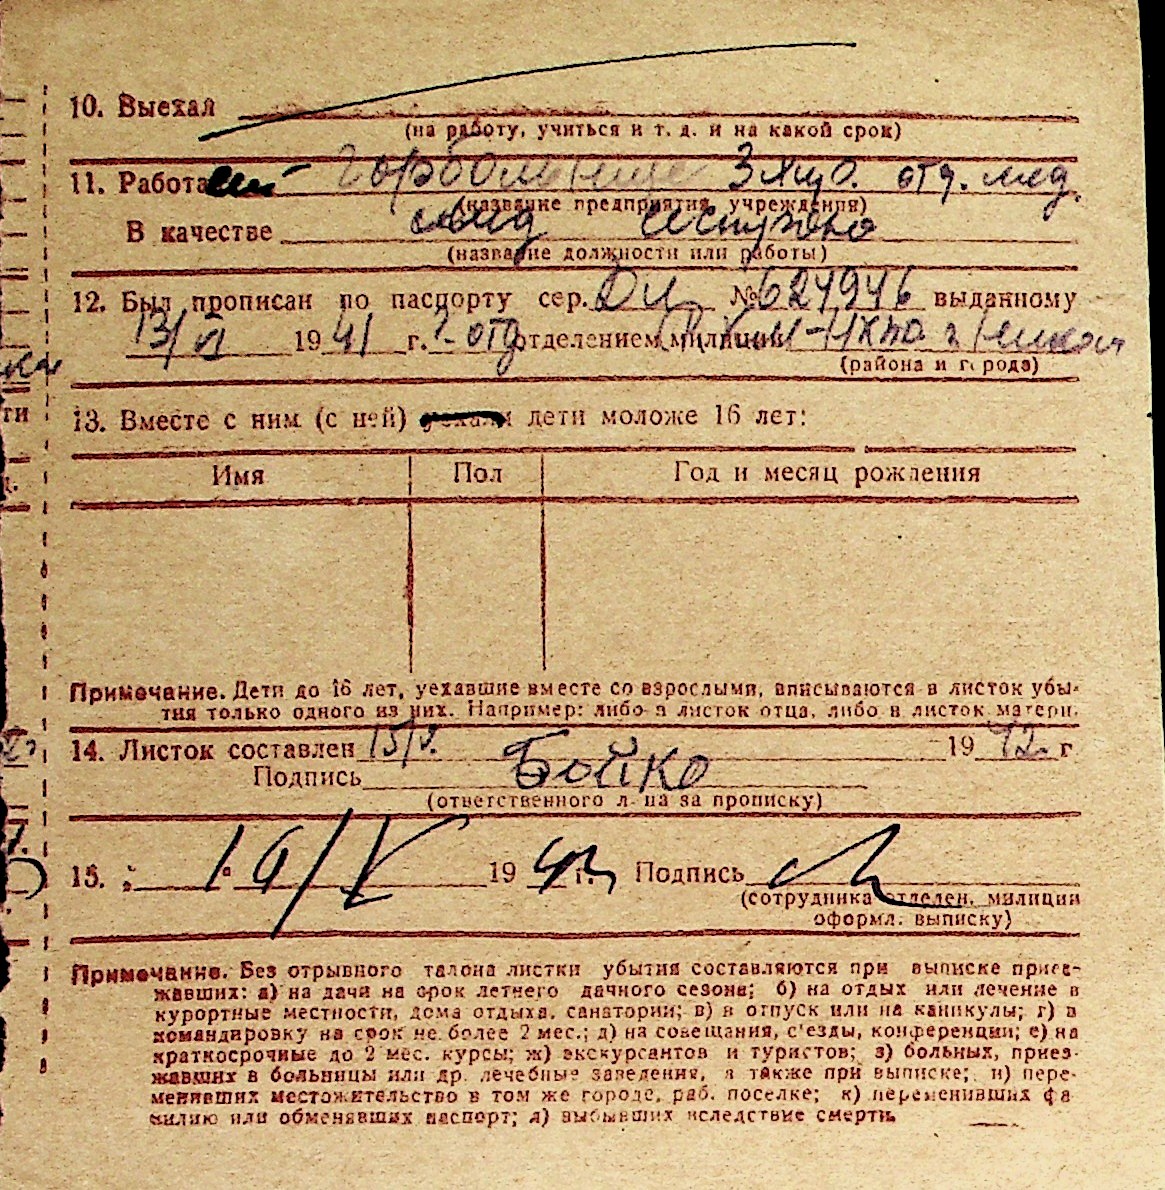 10. Выехал
(на работу, учиться и т. д. и на какой срок)
11. Работа горбольнице отд. мед.
(название предприятия, учреждения)
В качестве
(название должности или работы)
12. Был прописан по паспорту сер. № 624946 выданному
13/VI 1941 г. отд отделением милиции
(района и города)
13. Вместе с ним (с ней) дети моложе 16 лет:
Имя Пол Год и месяц рождения
Примечание. Дети до 16 лет, уехавшие вместе со взрослыми, вписываются в листок убы-
тия только одного из них. Например: либо в листок отца, либо в листок матери.
14. Листок составлен 15/V. 1942 г
Подпись Бойко
(ответственного л-ца за прописку)
15. 16/V 1942 г. Подпись
(сотрудника отделен. милиции
оформл. выписку)
Примечание. Без отрывного талона листки убытия составляются при выписке приез-
жавших: а) на дачи на срок летнего дачного сезона; б) на отдых или лечение в
курортные местности, дома отдыха, санатории; в) в отпуск или на каникулы; г) в
командировку на срок не более 2 мес.; д) на совещания, с'езды, конференции; е) на
краткосрочные до 2 мес. курсы; ж) экскурсантов и туристов; з) больных, приез-
жавших в больницы или др. лечебные заведения, а также при выписке; и) пере-
менивших местожительство в том же городе, раб. поселке; к) переменивших фа-
милию или обменявших паспорт; л) выбывших вследствие смерти.